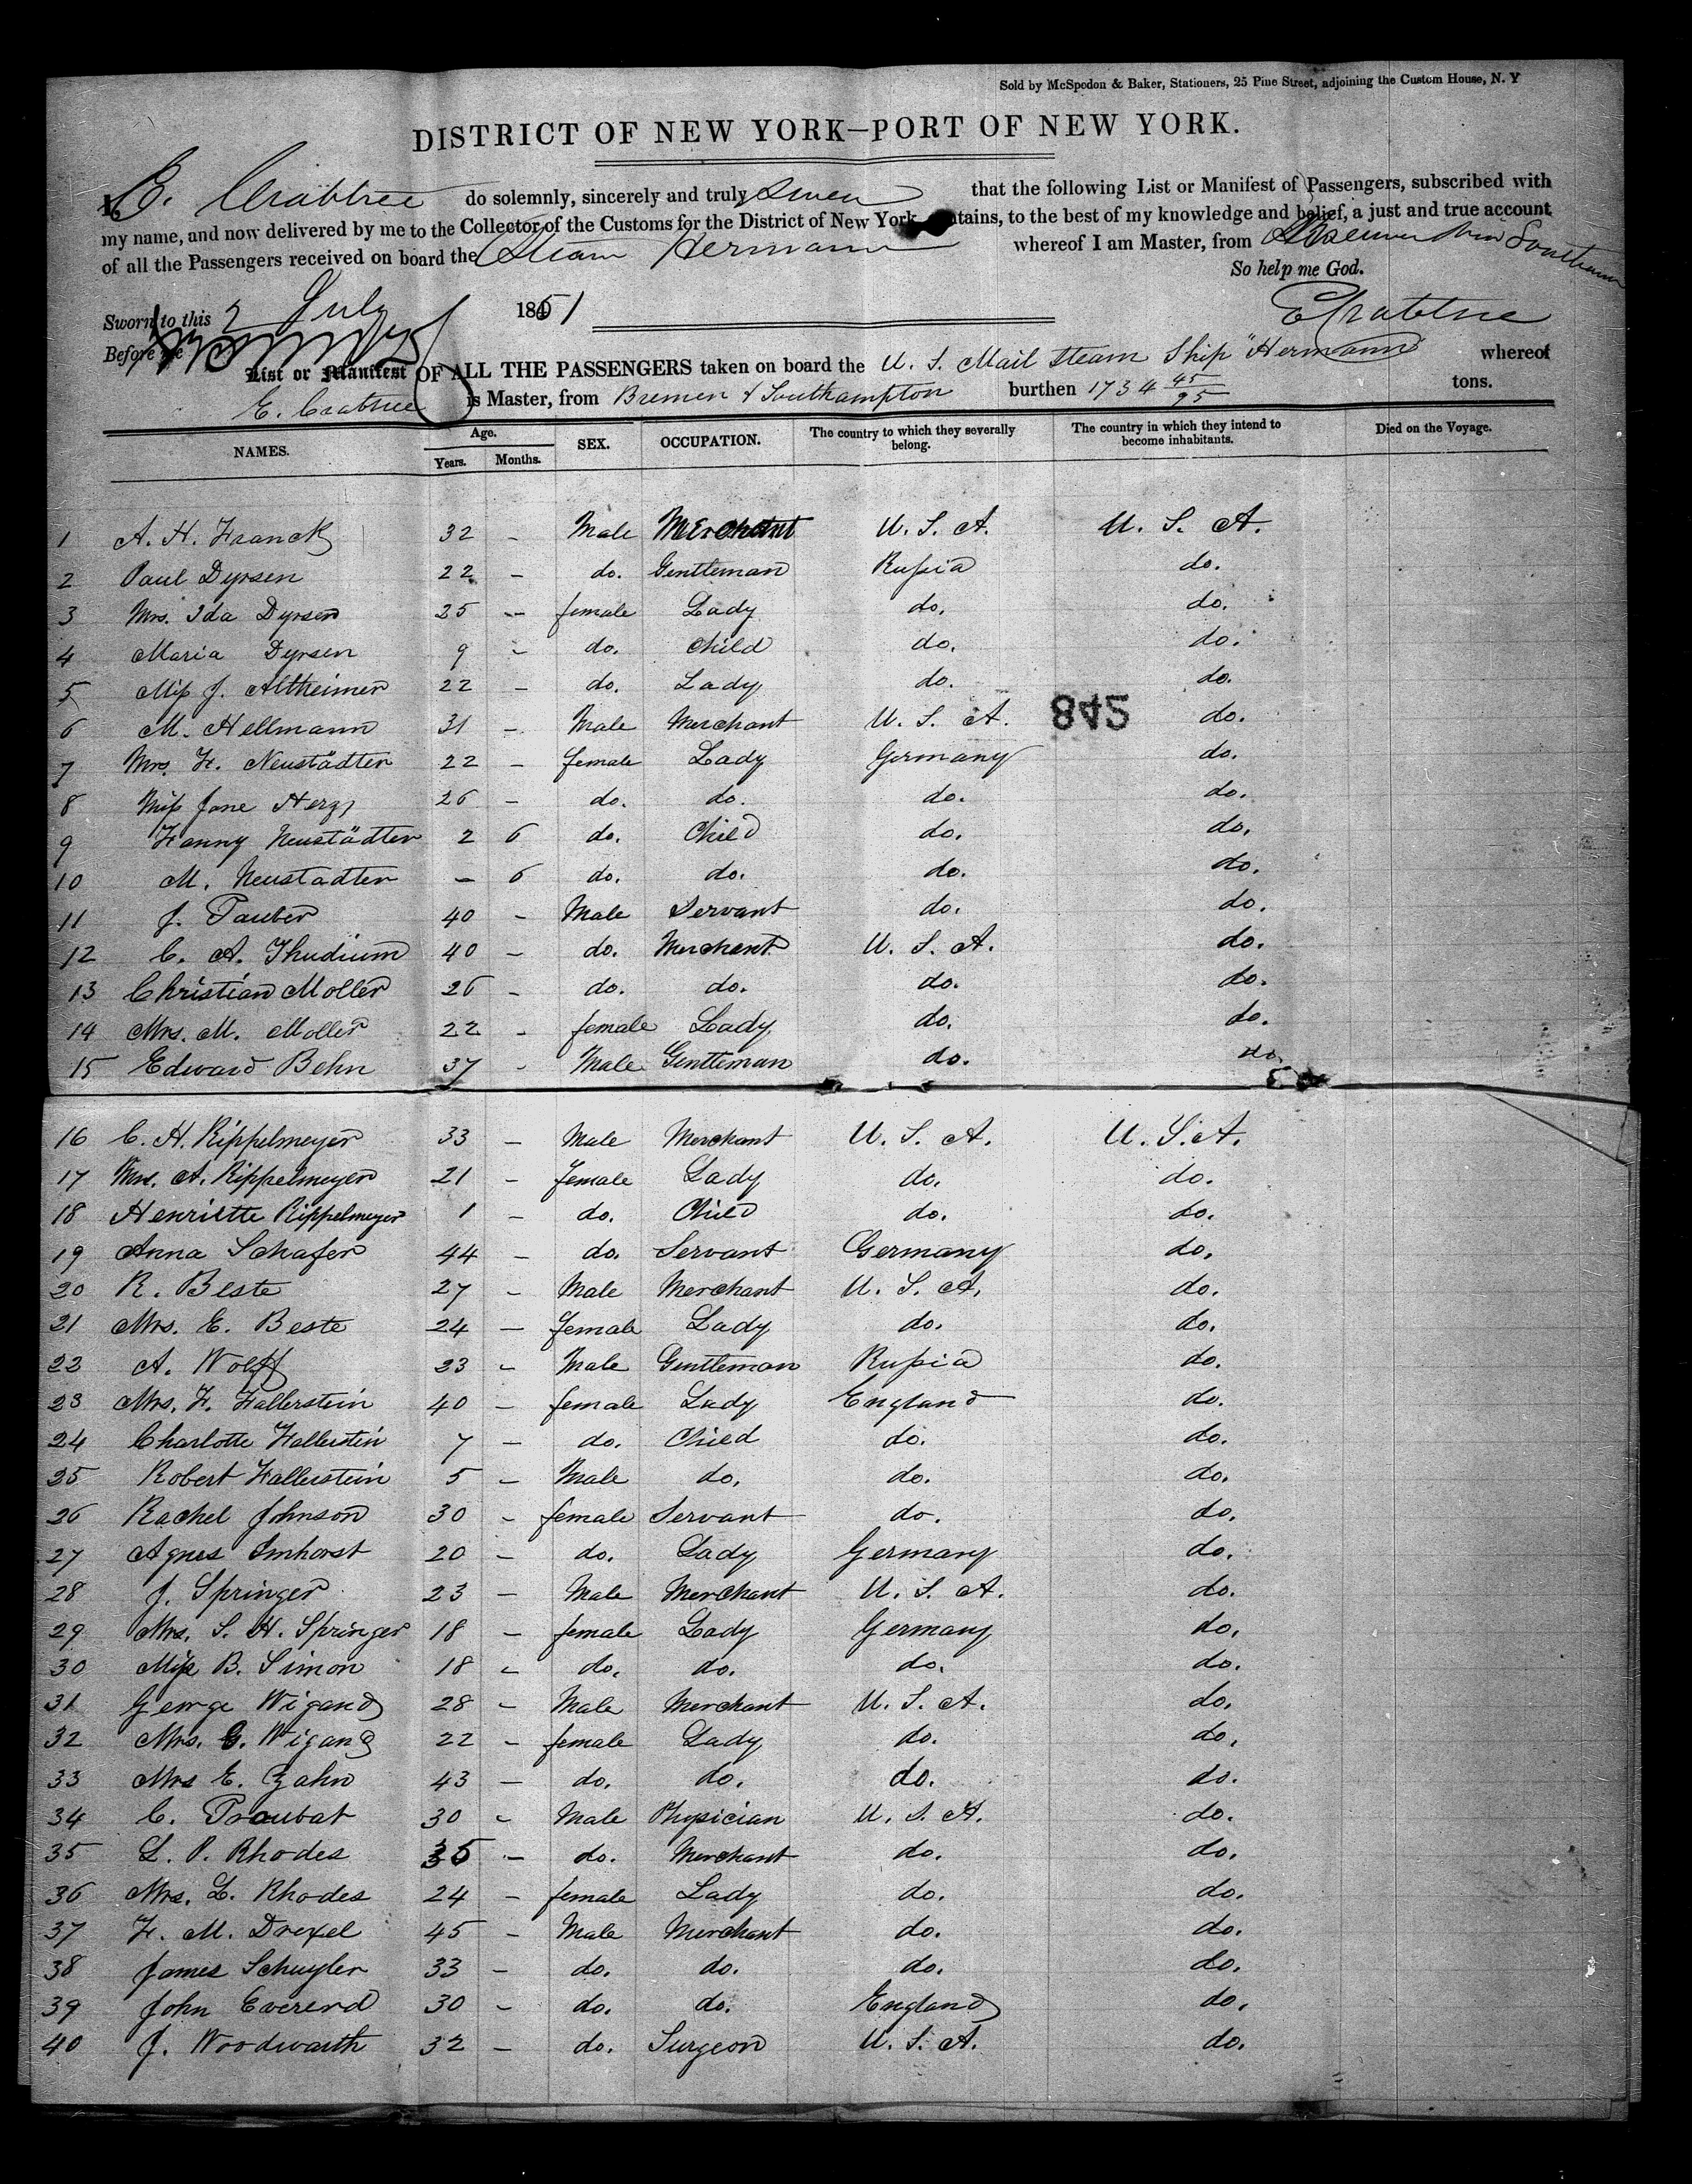 Sold by McSpedon & Baker, Stationers, 25 Pine Street, adjoining the Custom House, N. Y
DISTRICT OF NEW YORK—PORT OF NEW YORK.
I, E. Crabtree do solemnly, sincerely and truly swear that the following List or Manifest of Passengers, subscribed with
my name, and now delivered by me to the Collector of the Customs for the District of New York contains, to the best of my knowledge and belief, a just and true account
of all the Passengers received on board the Steam Hermann whereof I am Master, from Bremen
So help me God.
Sworn to this 2 July 1851
ECrabtree
Before me
List or Manifest OF ALL THE PASSENGERS taken on board the U. S. Mail Steam Ship "Hermann" whereof
E. Crabtree is Master, from Bremen & Southampton burthen 1734 45/95 tons.
NAMES. Age. Years. Months. SEX. OCCUPATION. The country to which they severally belong. The country in which they intend to become inhabitants. Died on the Voyage.
1 A. H. Franck 32 - Male Merchant U. S. A. U. S. A.
2 Paul Dyrsen 22 - do. Gentleman Rußia do.
3 Mrs. Ida Dyrsen 25 - female Lady do. do.
4 Maria Dyrsen 9 - do. Child do. do.
5 Miß J. Altheimer 22 - do. Lady do. do.
6 M. Hellmann 31 - Male Merchant U. S. A. do.
842
7 Mrs. F. Neustädter 22 - female Lady Germany do.
8 Miß Jane Herz 26 - do. do. do. do.
9 Fanny Neustädter 2 6 do. Child do. do.
10 M. Neustadter - 6 do. do. do. do.
11 J. Tauber 40 - Male Servant do. do.
12 C. A. Thudium 40 - do. Merchant U. S. A. do.
13 Christian Moller 26 - do. do. do. do.
14 Mrs. M. Moller 22 - female Lady do. do.
15 Edward Behn 37 - Male Gentleman do. do.
16 C. H. Rippelmeyer 33 - Male Merchant U. S. A. U. S. A.
17 Mrs. A. Rippelmeyer 21 - female Lady do. do.
18 Henriette Rippelmeyer 1 - do. Child do. do.
19 Anna Schafer 44 - do. Servant Germany do.
20 R. Beste 27 - Male Merchant U. S. A. do.
21 Mrs. E. Beste 24 - female Lady do. do.
22 A. Wolff 23 - Male Gentleman Rußia do.
23 Mrs. F. Fallerstein 40 - female Lady England do.
24 Charlotte Fallerstein 7 - do. Child do. do.
25 Robert Fallerstein 5 - Male do. do. do.
26 Rachel Johnson 30 - female Servant do. do.
27 Agnes Imhorst 20 - do. Lady Germany do.
28 J. Springer 23 - Male Merchant U. S. A. do.
29 Mrs. S. H. Springer 18 - female Lady Germany do.
30 Miß B. Simon 18 - do. do. do. do.
31 George Wigand 28 - Male Merchant U. S. A. do.
32 Mrs. G. Wigand 22 - female Lady do. do.
33 Mrs E. Zahn 43 - do. do. do. do.
34 C. Toaubat 30 - Male Physician U. S. A. do.
35 L. P. Rhodes 35 - do. Merchant do. do.
36 Mrs. L. Rhodes 24 - female Lady do. do.
37 F. M. Drexel 45 - Male Merchant do. do.
38 James Schuyler 33 - do. do. do. do.
39 John Evererd 30 - do. do. England do.
40 J. Woodwarth 32 - do. Surgeon U. S. A. do.